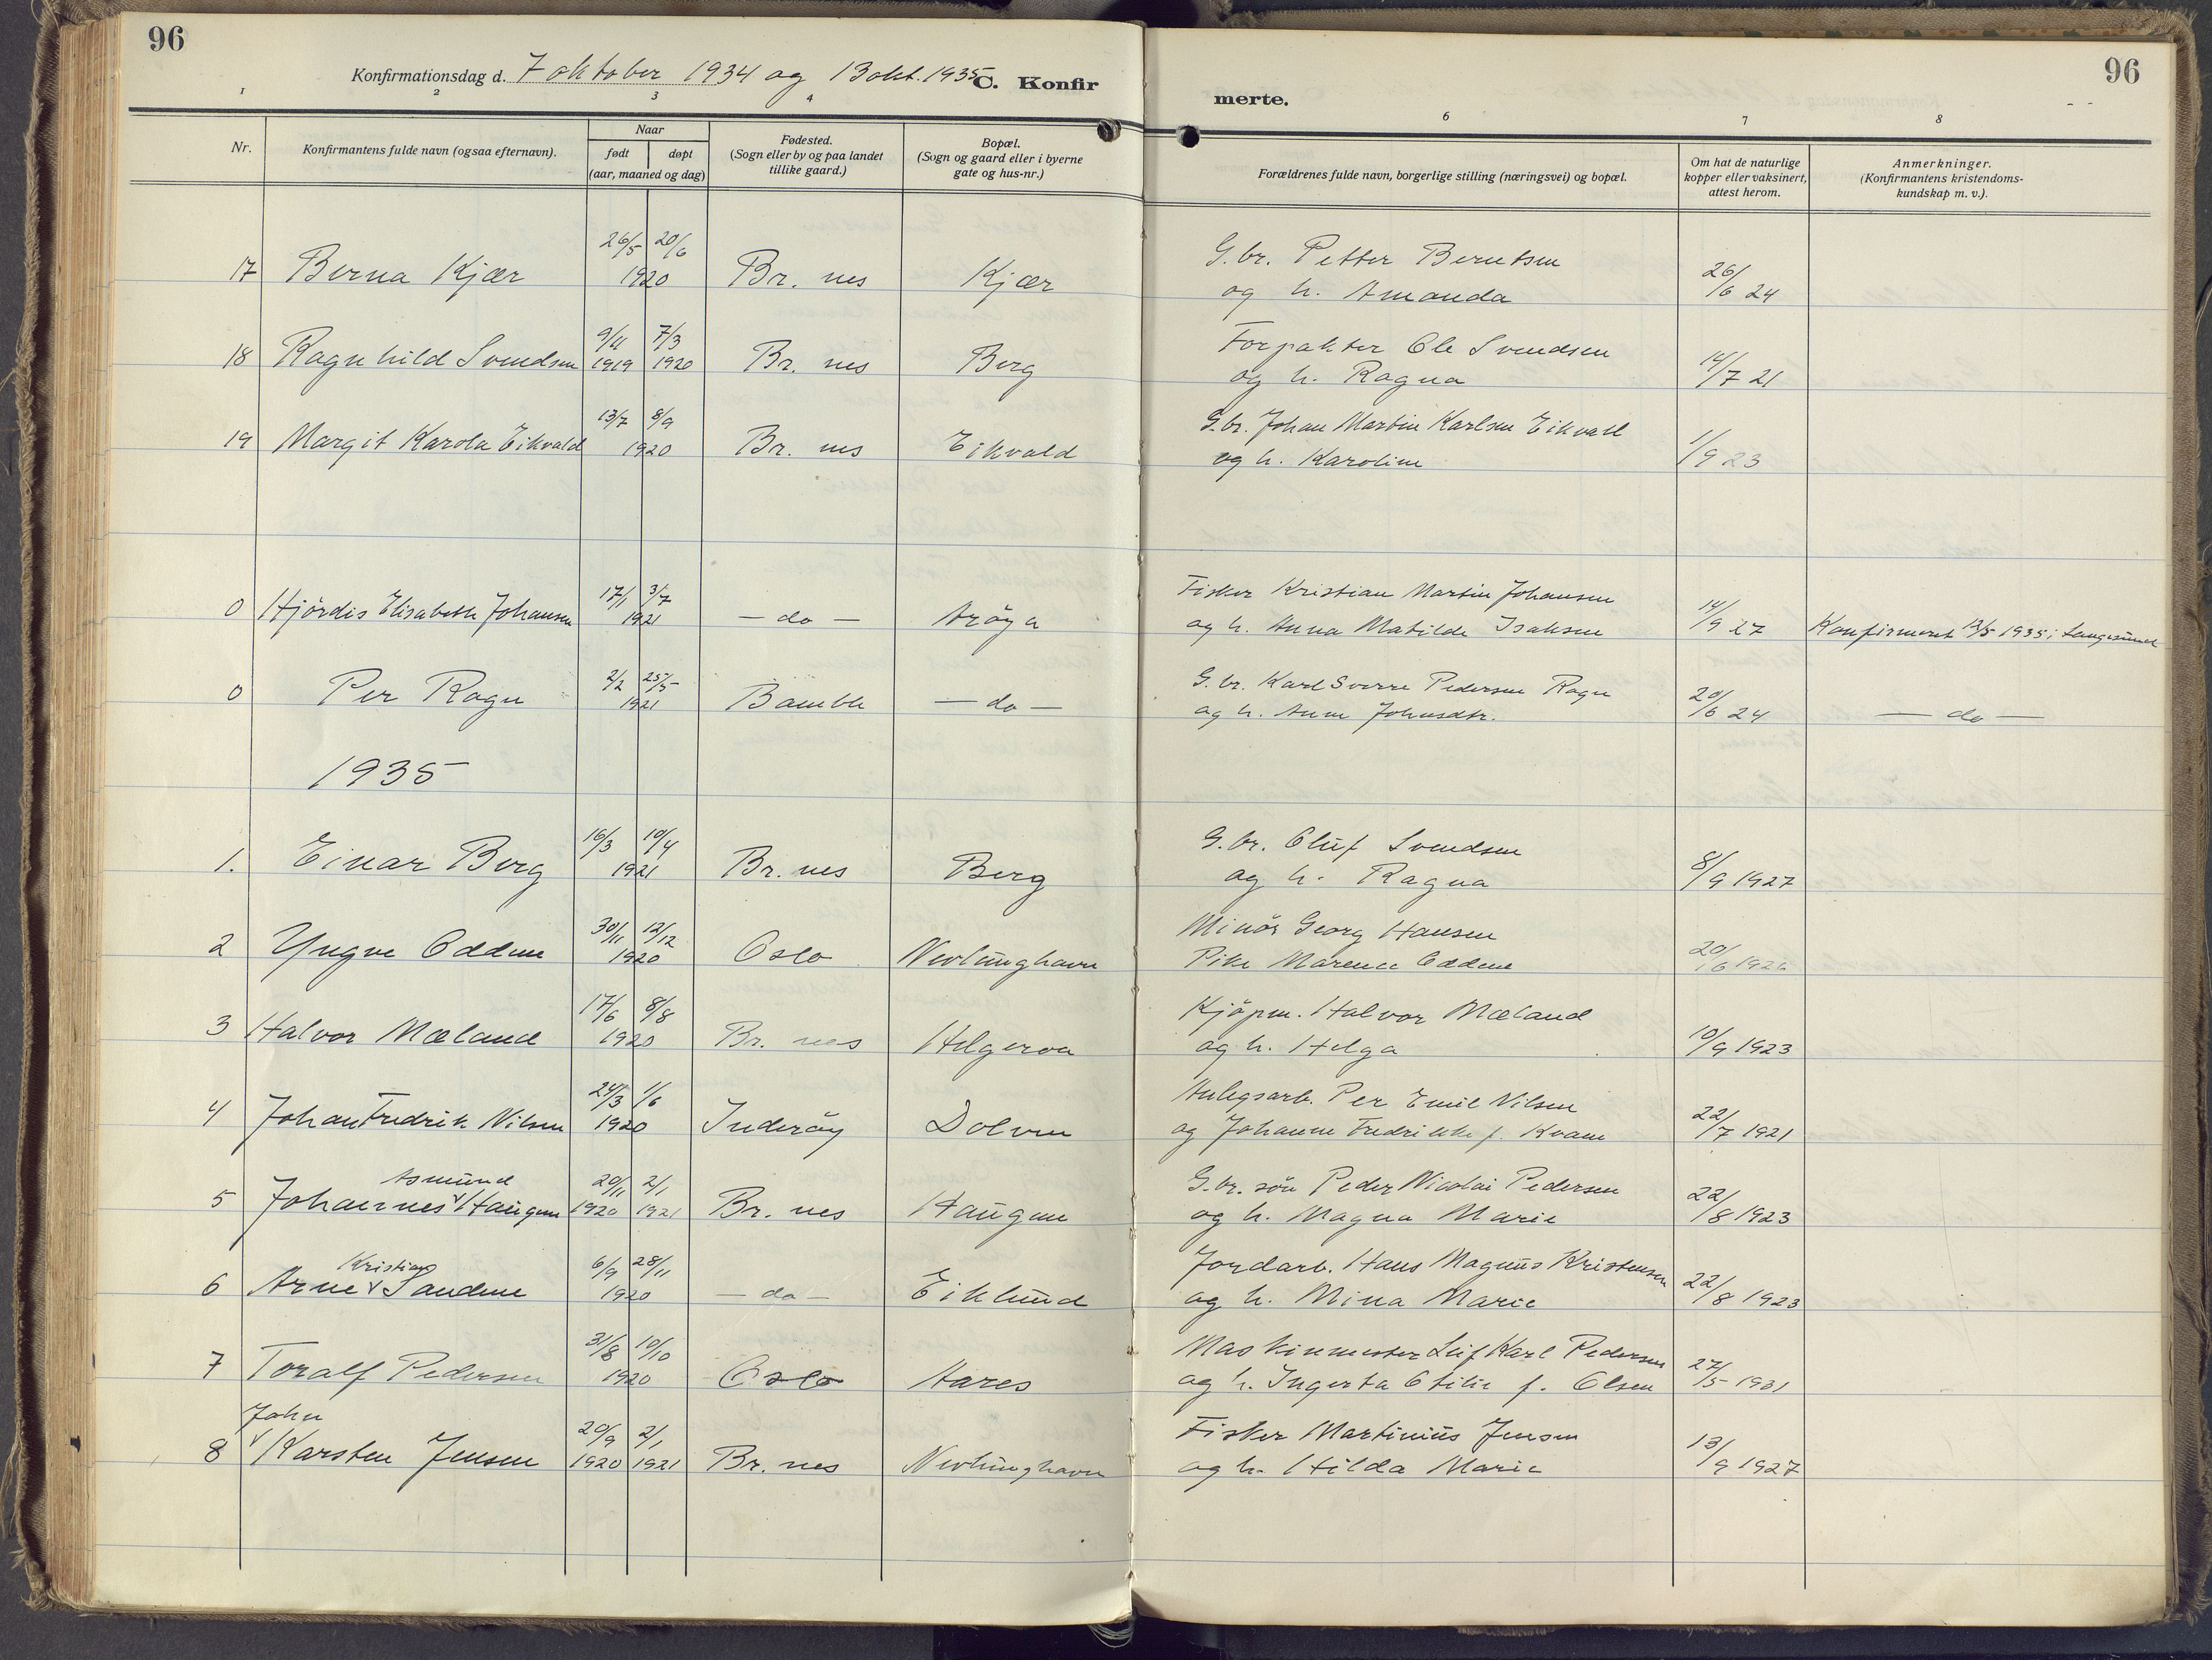 96
Konfirmationsdag d. 7 oktober 1934 og 13 okt. 1935
C. Konfirmerte.
96
1 2 3 4 6 7 8
Nr. | Konfirmantens fulde navn (ogsaa efternavn). | Naar født døpt (aar, maaned og dag) | Fødested. (Sogn eller by og paa landet tillike gaard.) | Bopæl. (Sogn og gaard eller i byerne gate og hus-nr.) | Forældrenes fulde navn, borgerlige stilling (næringsvei) og bopæl. | Om hat de naturlige kopper eller vaksinert, attest herom. | Anmerkninger. (Konfirmantens kristendomskundskap m. v.).
17 Berna Kjær 26/5 20/6 1920 Br. nes Kjær G.br. Petter Berntsen og h. Amanda 26/6 24
18 Ragnhild Svendsen 9/11 1919 7/3 1920 Br. nes Berg Forpakter Ole Svendsen og h. Ragna 14/7 21
19 Margit Karola Eikvald 13/7 8/9 1920 Br. nes Eikvald G.br. Johan Martin Karlsen Eikvall og h. Karoline 1/9 23
0 Hjördis Elisabeth Johansen 17/1 3/7 1921 — do — Aröya Fisker Kristian Martin Johansen og h. Anna Matilde Isaksen 14/9 27 Konfirmeret 12/5 1935 i Langesund
0 Per Rogn 2/2 25/5 1921 Bamble — do — G.br. Karl Sverre Pedersen Rogn og h. Anne Johnsdtr. 20/6 24 — do —
1935
1. Einar Berg 16/3 10/4 1921 Br. nes Berg G.br. Oluf Svendsen og h. Ragna 8/9 1927
2 Yngve Oddene 30/11 12/12 1920 Oslo Nevlunghavn Minör Georg Hansen Pike Marence Oddene 20/6 1926
3 Halvor Mæland 17/6 8/8 1920 Br. nes Helgeroa Kjöpm. Halvor Mæland og h. Helga 10/9 1923
4 Johan Fredrik Nilsen 24/3 1/6 1920 Inderöy Dolven Anlegsarb. Per Emil Nilsen og Johanne Fredrikke f. Kvam 22/7 1921
5 Johannes Asmund Haugen 20/11 1920 2/1 1921 Br. nes Haugen G.br. sön Peder Nicolai Pedersen og h. Magna Marie 22/8 1923
6 Arne Kristian Sandene 6/9 28/11 1920 — do — Eiklund Jordarb. Hans Magnus Kristensen og h. Mina Marie 22/8 1923
7 Toralf Pedersen 31/8 10/10 1920 Oslo Aares Maskinmester Leif Karl Pedersen og h. Ingerta Otilie f. Olsen 27/5 1931
8 John Karsten Jensen 20/9 1920 2/1 1921 Br. nes Nevlunghavn Fisker Martinius Jensen og h. Hilda Marie 13/9 1927